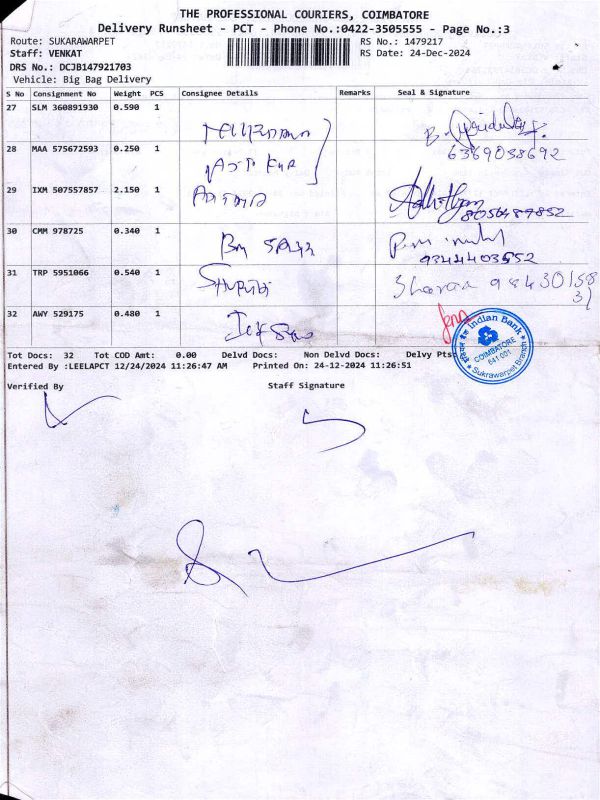 THE PROFESSIONAL COURIERS, COIMBATORE
Delivery Runsheet - PCT - Phone No.:0422-3505555 - Page No.:3
Route: SUKARAWARPET RS No.: 1479217
Staff: VENKAT RS Date: 24-Dec-2024
DRS No.: DCJB147921703
Vehicle: Big Bag Delivery
S No Consignment No Weight PCS Consignee Details Remarks Seal & Signature
27 SLM 360891930 0.590 1
28 MAA 575672593 0.250 1 6369038692
29 IXM 507557857 2.150 1 8056489852
30 CMM 978725 0.340 1 9344403552
31 TRP 5951066 0.540 1 Sharan 98430158
31
32 AWY 529175 0.480 1
Indian Bank
COIMBATORE
641 001
Sukrawarpet Branch
Tot Docs: 32 Tot COD Amt: 0.00 Delvd Docs: Non Delvd Docs: Delvy Pts:
Entered By :LEELAPCT 12/24/2024 11:26:47 AM Printed On: 24-12-2024 11:26:51
Verified By Staff Signature